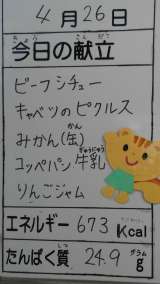 4月26日
今日の献立
ビーフシチュー
キャベツのピクルス
みかん(缶)
コッペパン 牛乳
りんごジャム
エネルギー 673 Kcal
たんぱく質 24.9 g